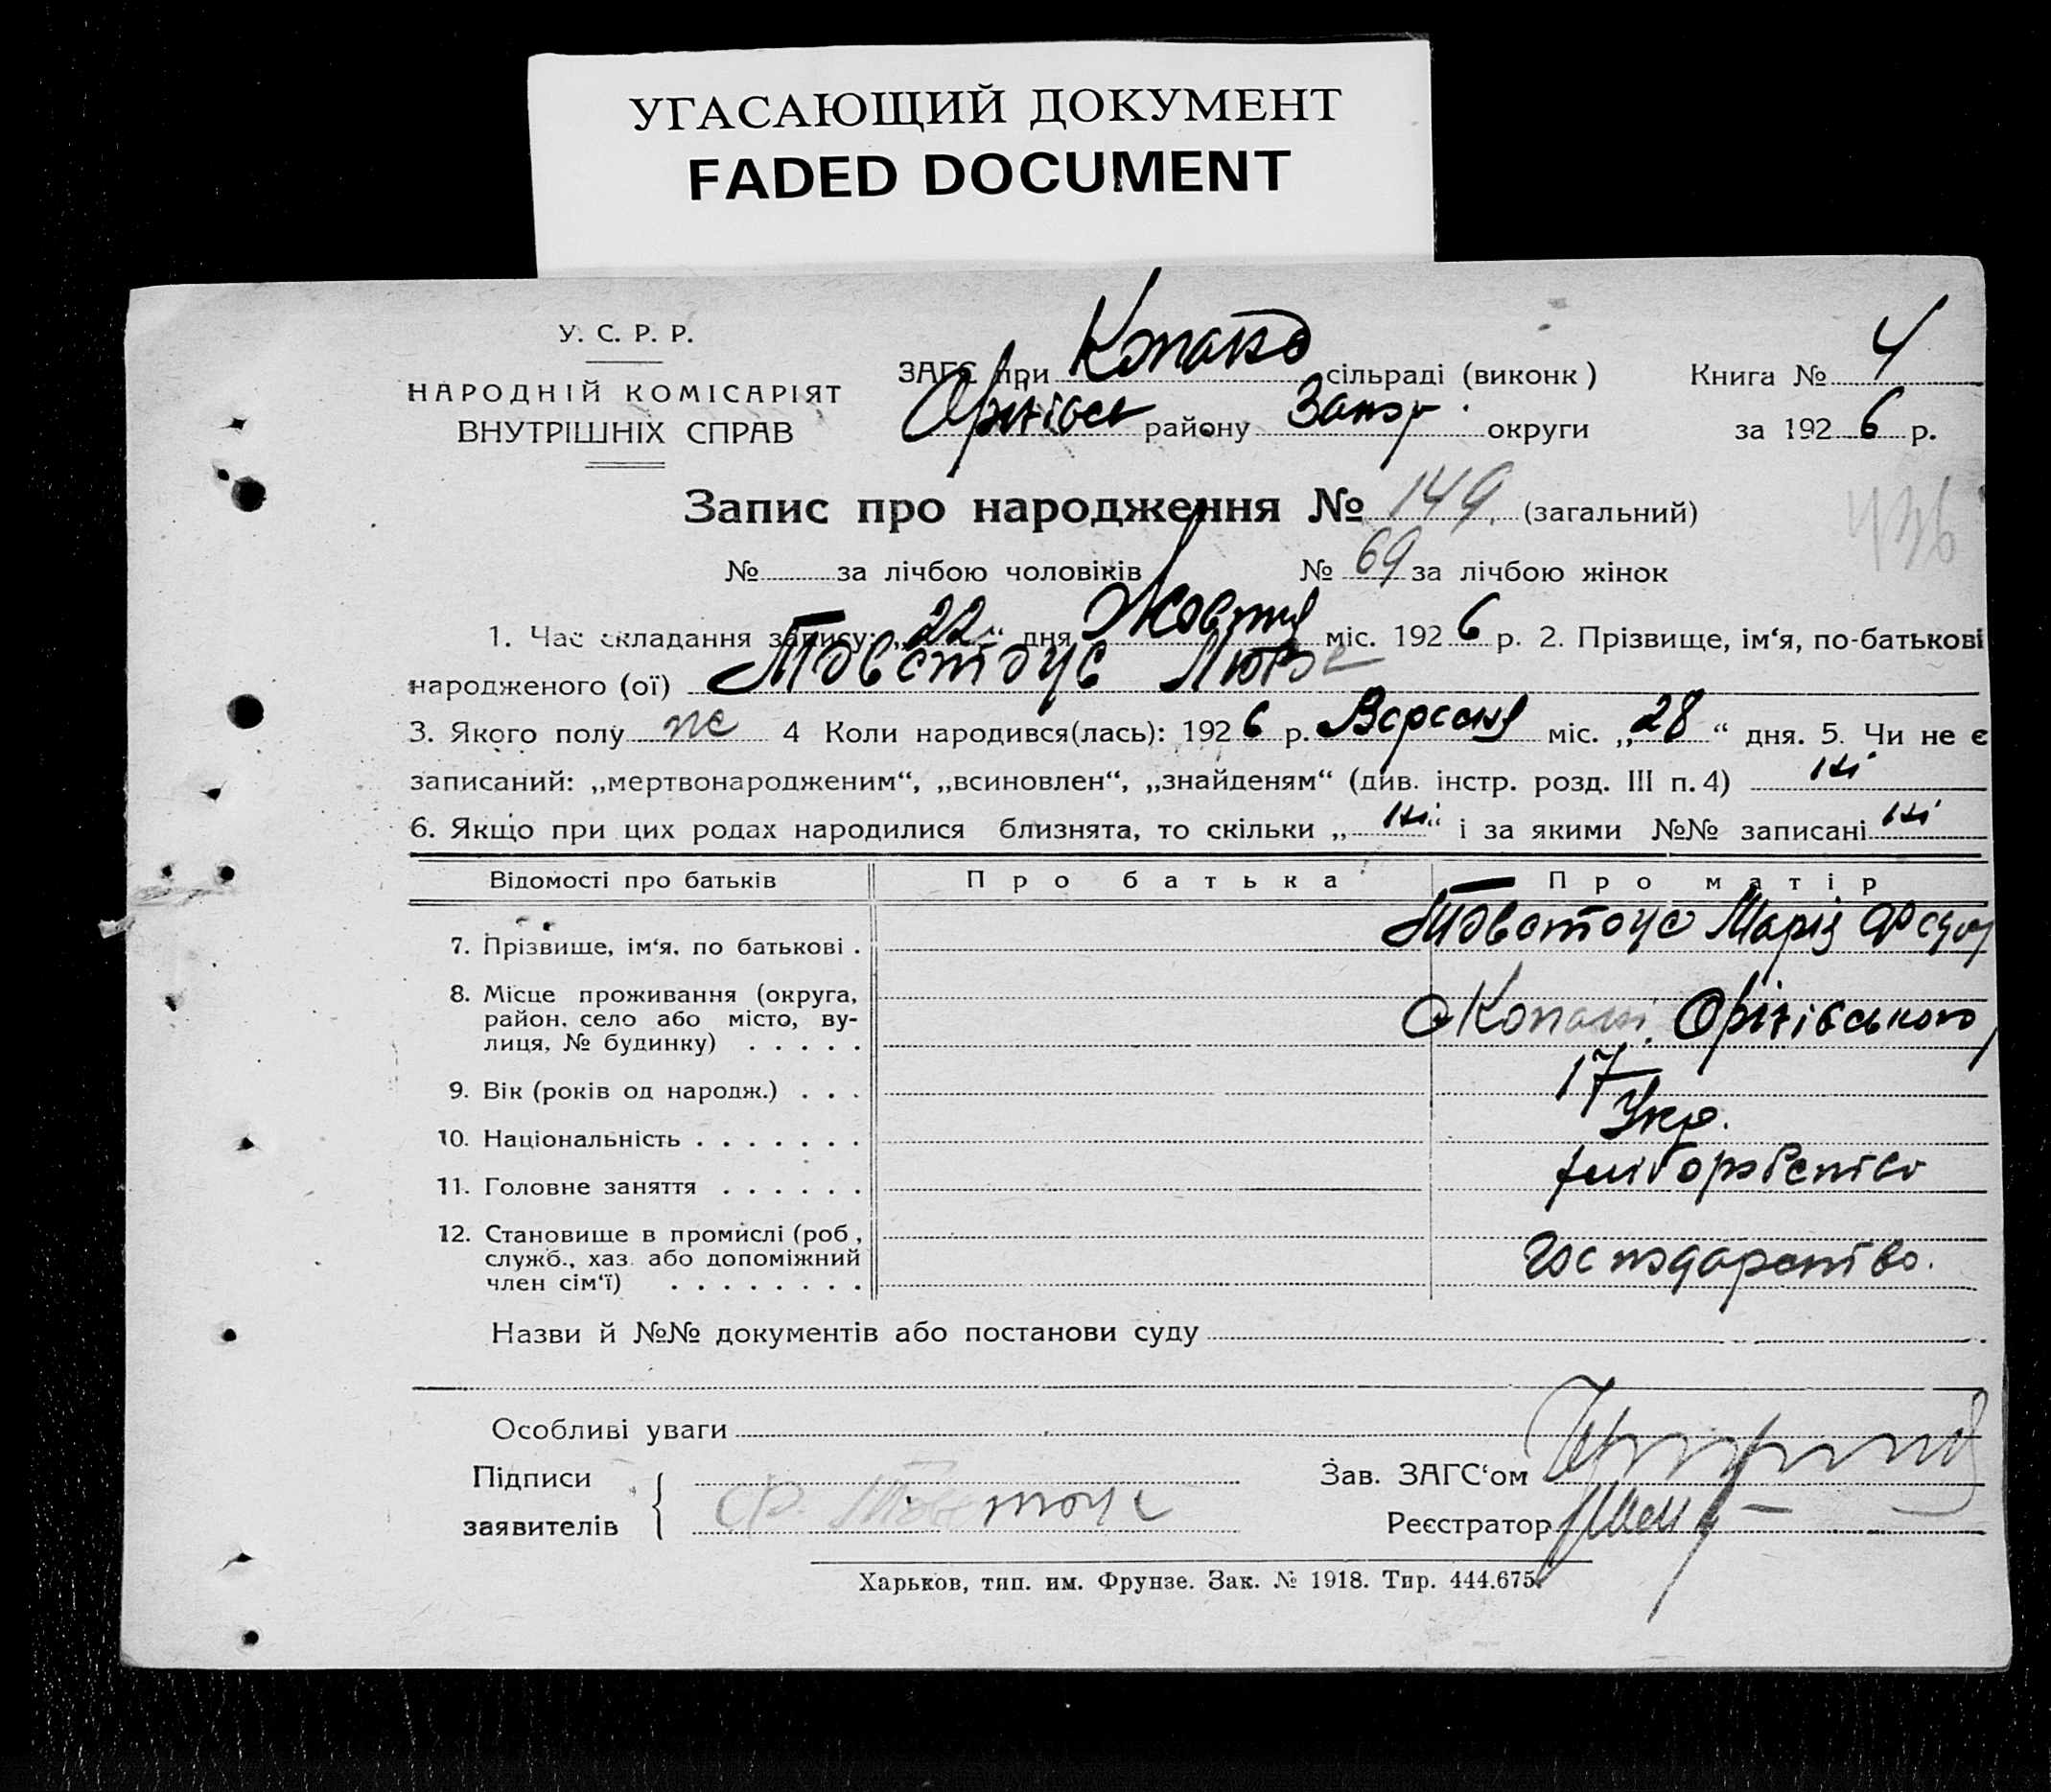 УГАСАЮЩИЙ ДОКУМЕНТ
FADED DOCUMENT
У. С. Р. Р.
НАРОДНІЙ КОМІСАРІЯТ
ВНУТРІШНІХ СПРАВ
ЗАГС при сільраді (виконк)
Оріхівск району Запор. округи
Книга № 4
за 1926 р.
Запис про народження № 149 (загальний)
№ за лічбою чоловіків № 69 за лічбою жінок
1. Час складання запису: „22“ дня Жовтня міс. 1926 р. 2. Прізвище, ім‘я, по-батькові
народженого (ої) Товстоус
3. Якого полу 4 Коли народився(лась): 1926 р. Вересня міс. „28“ дня. 5. Чи не є
записаний: „мертвонародженим“, „всиновлен“, „знайденям“ (див. інстр. розд. III п. 4) ні
6. Якщо при цих родах народилися близнята, то скільки „ні“ і за якими №№ записані ні
Відомості про батьків Про батька Про матір
7. Прізвище, ім‘я, по батькові . Товстоус Марія
8. Місце проживання (округа,
район, село або місто, ву-
лиця, № будинку) . . . . . с Копані Оріхівського
9. Вік (років од народж.) . . . 17
10. Національність . . . . . . . Укр.
11. Головне заняття . . . . . . хліборобство
12. Становище в промислі (роб,
служб., хаз. або допоміжний
член сім‘ї) . . . . . . . . господарство.
Назви й №№ документів або постанови суду
Особливі уваги
Підписи
заявителів Ф. Товстоус
Зав. ЗАГС‘ом
Реєстратор
Харьков, тип. им. Фрунзе. Зак. № 1918. Тир. 444.675.